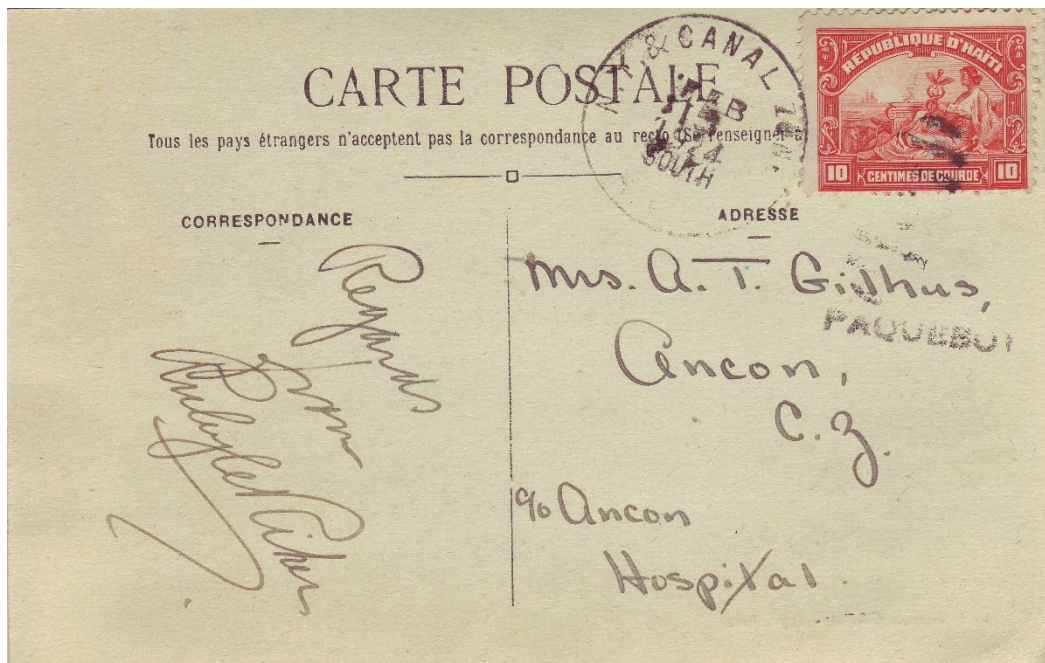 CARTE POSTALE
Tous les pays étrangers n'acceptent pas la correspondance au recto (Se renseigner à
N.Y. & CANAL ZON.
FEB
1924
SOUTH
REPUBLIQUE D'HAÏTI
10 CENTIMES DE GOURDE 10
CORRESPONDANCE
Regards
from
ADRESSE
Mrs. A. T. Gidhus,
PAQUEBOT
Ancon,
C.Z.
c/o Ancon
Hospital.